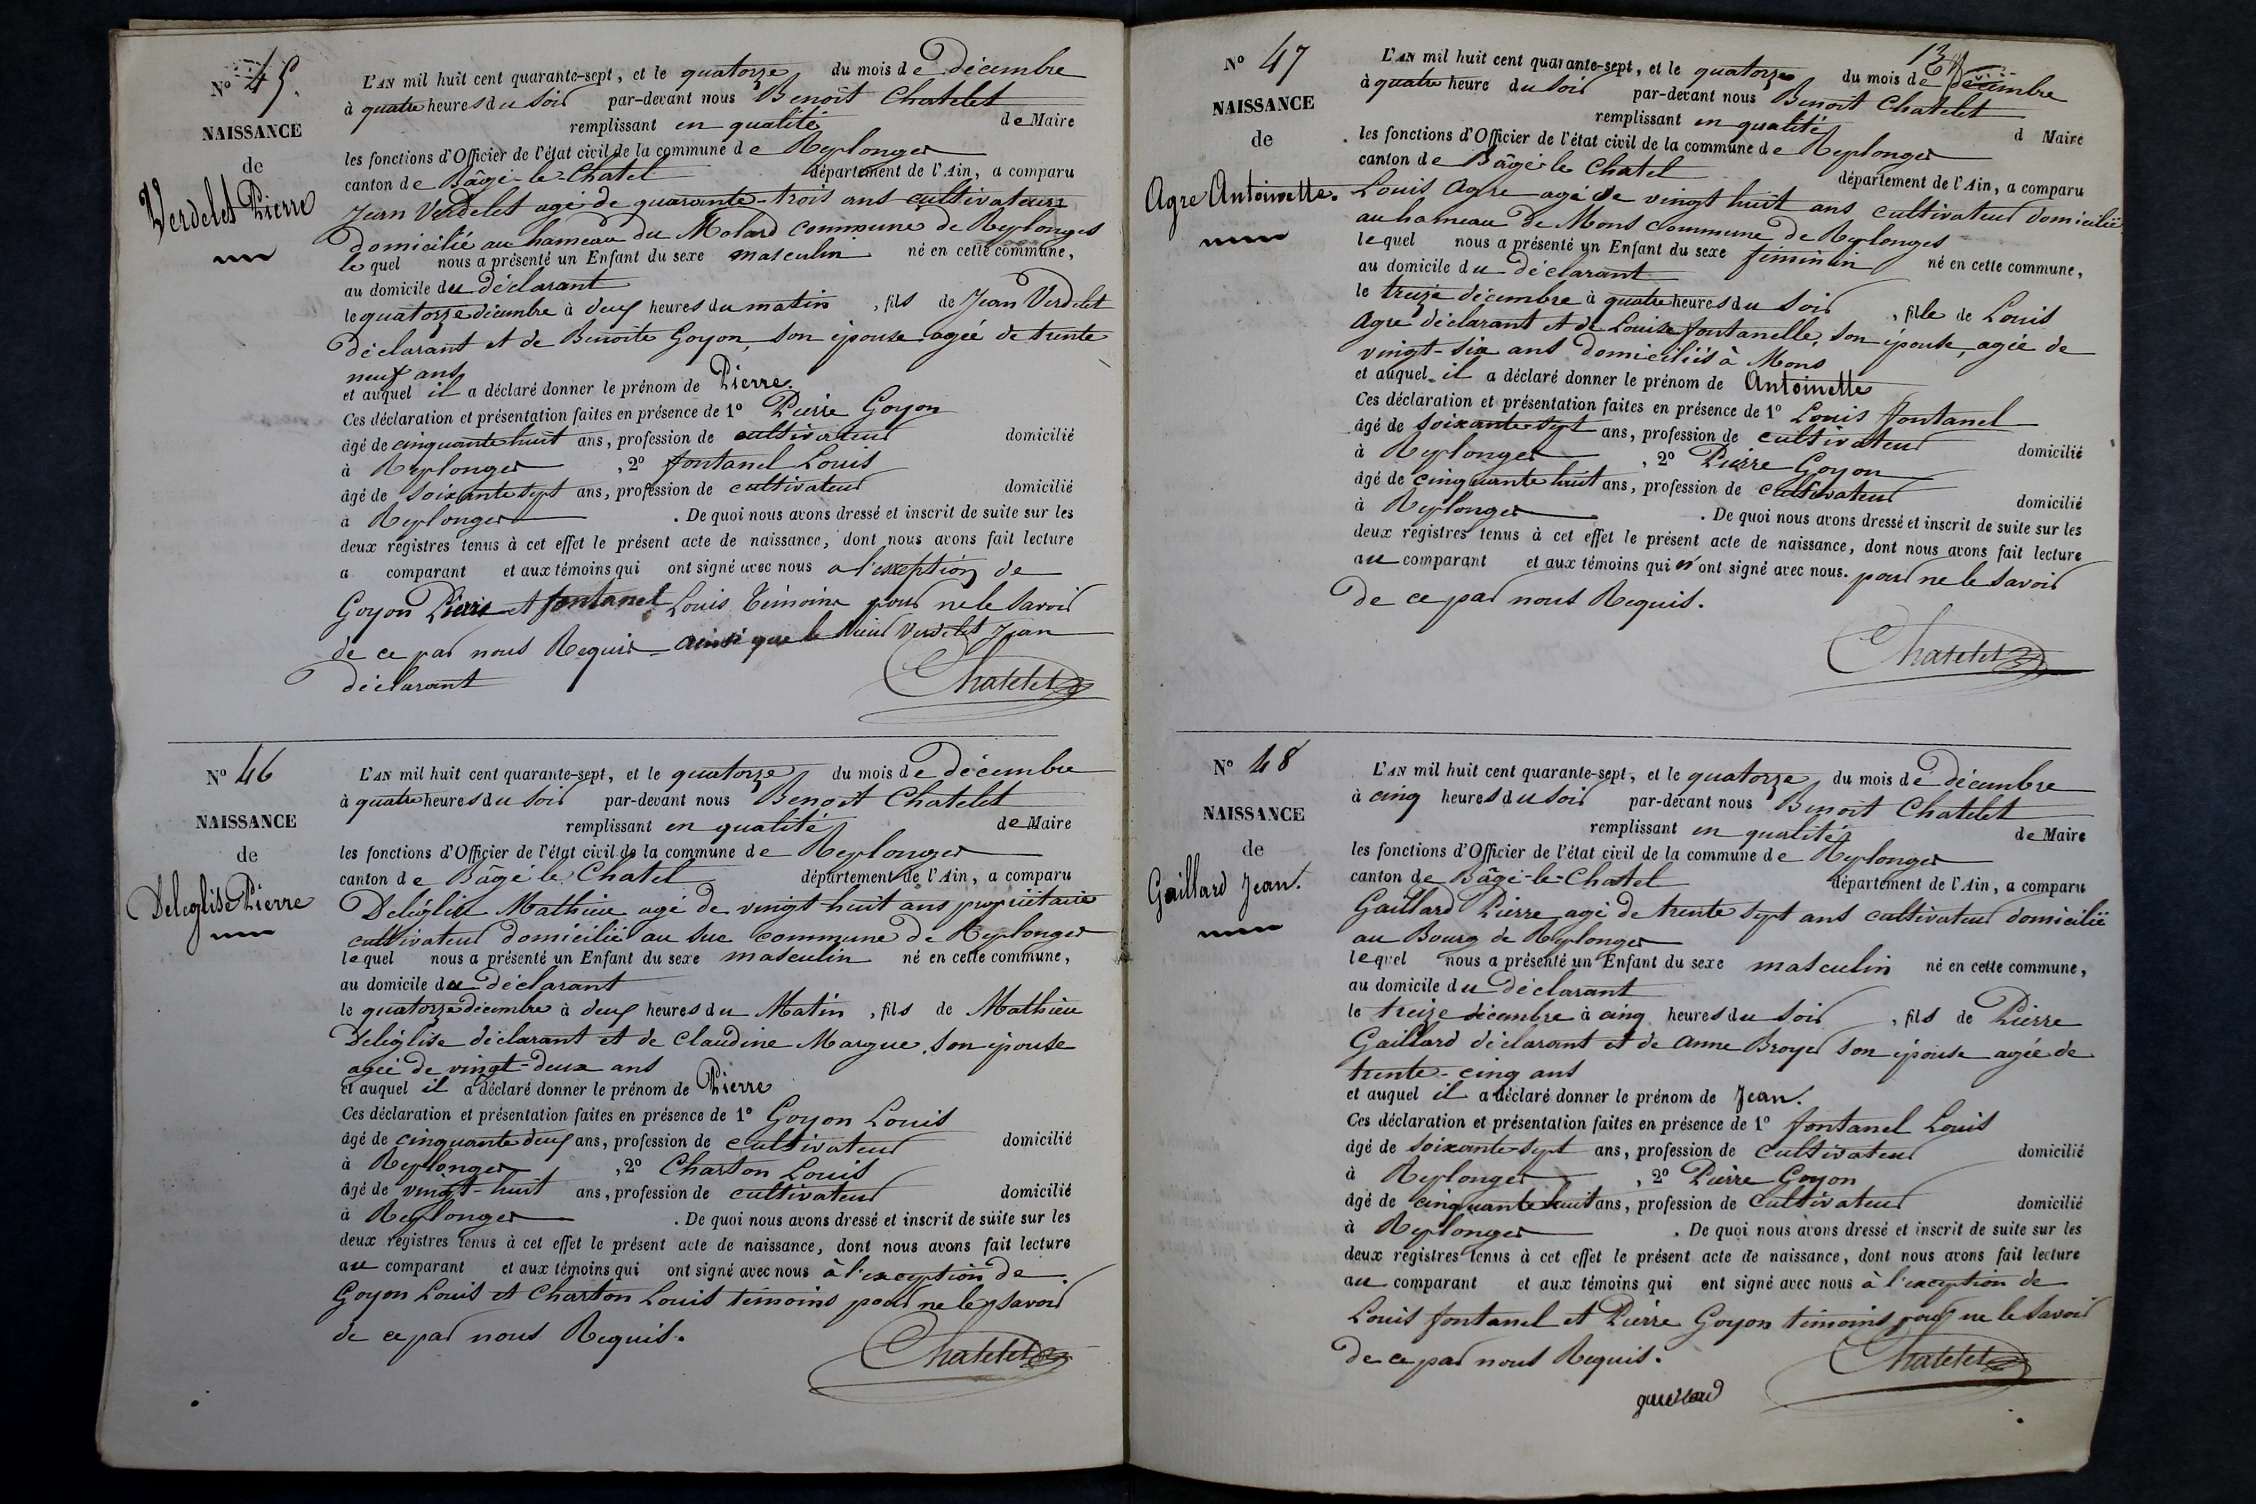 N° 45.
NAISSANCE
de
Verdelet Pierre
L'AN mil huit cent quarante-sept, et le quatorze du mois de Décembre
à quatre heures du soir par-devant nous Benoit Chatelet
remplissant en qualité de Maire
les fonctions d'Officier de l'état civil de la commune de Replonges
canton de Bâgé-le-Chatel département de l'Ain, a comparu
Jean Verdelet agé de quarante-trois ans cultivateur
domicilié au hameau du Molard commune de Replonges
lequel nous a présenté un Enfant du sexe masculin né en cette commune,
au domicile du déclarant
le quatorze décembre à deux heures du matin, fils de Jean Verdelet
déclarant et de Benoite Goyon, son épouse agée de trente
neuf ans
et auquel il a déclaré donner le prénom de Pierre.
Ces déclaration et présentation faites en présence de 1° Pierre Goyon
âgé de cinquante huit ans, profession de cultivateur domicilié
à Replonges, 2° fontanel Louis
âgé de soixante sept ans, profession de cultivateur domicilié
à Replonges. De quoi nous avons dressé et inscrit de suite sur les
deux registres tenus à cet effet le présent acte de naissance, dont nous avons fait lecture
a comparant et aux témoins qui ont signé avec nous a l'exception de
Goyon Pierre et fontanel Louis témoins pour ne le savoir
de ce par nous Requis ainsi que le sieur Verdelet Jean
déclarant
Chatelet
N° 46
NAISSANCE
de
Deleglise Pierre
L'AN mil huit cent quarante-sept, et le quatorze du mois de Décembre
à quatre heures du soir par-devant nous Benoit Chatelet
remplissant en qualité de Maire
les fonctions d'Officier de l'état civil de la commune de Replonges
canton de Bâgé le Chatel département de l'Ain, a comparu
Deléglise Mathieu agé de vingt-huit ans propriétaire
cultivateur domicilié au Suc commune de Replonges
lequel nous a présenté un Enfant du sexe masculin né en cette commune,
au domicile du déclarant
le quatorze décembre à deux heures du Matin, fils de Mathieu
Deléglise déclarant et de Claudine Margue, son épouse
agée de vingt-deux ans
et auquel il a déclaré donner le prénom de Pierre
Ces déclaration et présentation faites en présence de 1° Goyon Louis
âgé de cinquante deux ans, profession de cultivateur domicilié
à Replonges, 2° Charton Louis
âgé de vingt-huit ans, profession de cultivateur domicilié
à Replonges. De quoi nous avons dressé et inscrit de suite sur les
deux registres tenus à cet effet le présent acte de naissance, dont nous avons fait lecture
au comparant et aux témoins qui ont signé avec nous à l'exception de
Goyon Louis et Charton Louis témoins pour ne le savoir
de ce par nous Requis.
Chatelet
13
N° 47
NAISSANCE
de
Agre Antoinette.
L'AN mil huit cent quarante-sept, et le quatorze du mois de Décembre
à quatre heure du soir par-devant nous Benoit Chatelet
remplissant en qualité d Maire
les fonctions d'Officier de l'état civil de la commune de Replonges
canton de Bâgé le Chatel département de l'Ain, a comparu
Louis Agre agé de vingt huit ans cultivateur domicilié
au hameau de Mons commune de Replonges
lequel nous a présenté un Enfant du sexe féminin né en cette commune,
au domicile du déclarant
le treize décembre à quatre heures du soir, fille de Louis
Agre déclarant et de Louise fontanelle, son épouse, agée de
vingt-six ans domiciliés à Mons
et auquel il a déclaré donner le prénom de Antoinette
Ces déclaration et présentation faites en présence de 1° Louis fontanel
âgé de soixante sept ans, profession de cultivateur domicilié
à Replonges, 2° Pierre Goyon
âgé de cinquante huit ans, profession de cultivateur domicilié
à Replonges. De quoi nous avons dressé et inscrit de suite sur les
deux registres tenus à cet effet le présent acte de naissance, dont nous avons fait lecture
au comparant et aux témoins qui n'ont signé avec nous. pour ne le savoir
de ce par nous Requis.
Chatelet
N° 48
NAISSANCE
de
Gaillard Jean.
L'AN mil huit cent quarante-sept, et le quatorze du mois de Décembre
à cinq heures du soir par-devant nous Benoit Chatelet
remplissant en qualité de Maire
les fonctions d'Officier de l'état civil de la commune de Replonges
canton de Bâgé-le-Chatel département de l'Ain, a comparu
Gaillard Pierre agé de trente sept ans cultivateur domicilié
au Bourg de Replonges
lequel nous a présenté un Enfant du sexe masculin né en cette commune,
au domicile du déclarant
le treize décembre à cinq heures du soir, fils de Pierre
Gaillard déclarant et de Anne Broyer son épouse agée de
trente-cinq ans
et auquel il a déclaré donner le prénom de Jean.
Ces déclaration et présentation faites en présence de 1° fontanel Louis
âgé de soixante sept ans, profession de cultivateur domicilié
à Replonges, 2° Pierre Goyon
âgé de cinquante huit ans, profession de cultivateur domicilié
à Replonges. De quoi nous avons dressé et inscrit de suite sur les
deux registres tenus à cet effet le présent acte de naissance, dont nous avons fait lecture
au comparant et aux témoins qui ont signé avec nous à l'exception de
Louis fontanel et Pierre Goyon témoins pour ne le savoir
de ce par nous Requis.
Chatelet